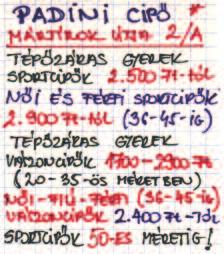 PADINI CIPŐ *
MÁRTÍROK ÚTJA 2/A
TÉPŐZÁRAS GYEREK
SPORTCIPŐK 2.500 Ft-tól
NŐI ÉS FÉRFI SPORTCIPŐK
2.900 Ft-tól (36-45-ig)
TÉPŐZÁRAS GYEREK
VÁSZONCIPŐK 1700-2900 Ft
(20-35-ÖS MÉRETBEN)
NŐI-FIÚ-FÉRFI (36-45-ig)
VÁSZONCIPŐK 2.400 Ft-TÓL
SPORTCIPŐK 50-ES MÉRETIG!